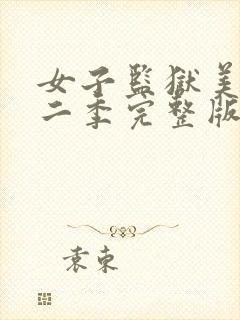 女子監獄美
二季完整版
袁束